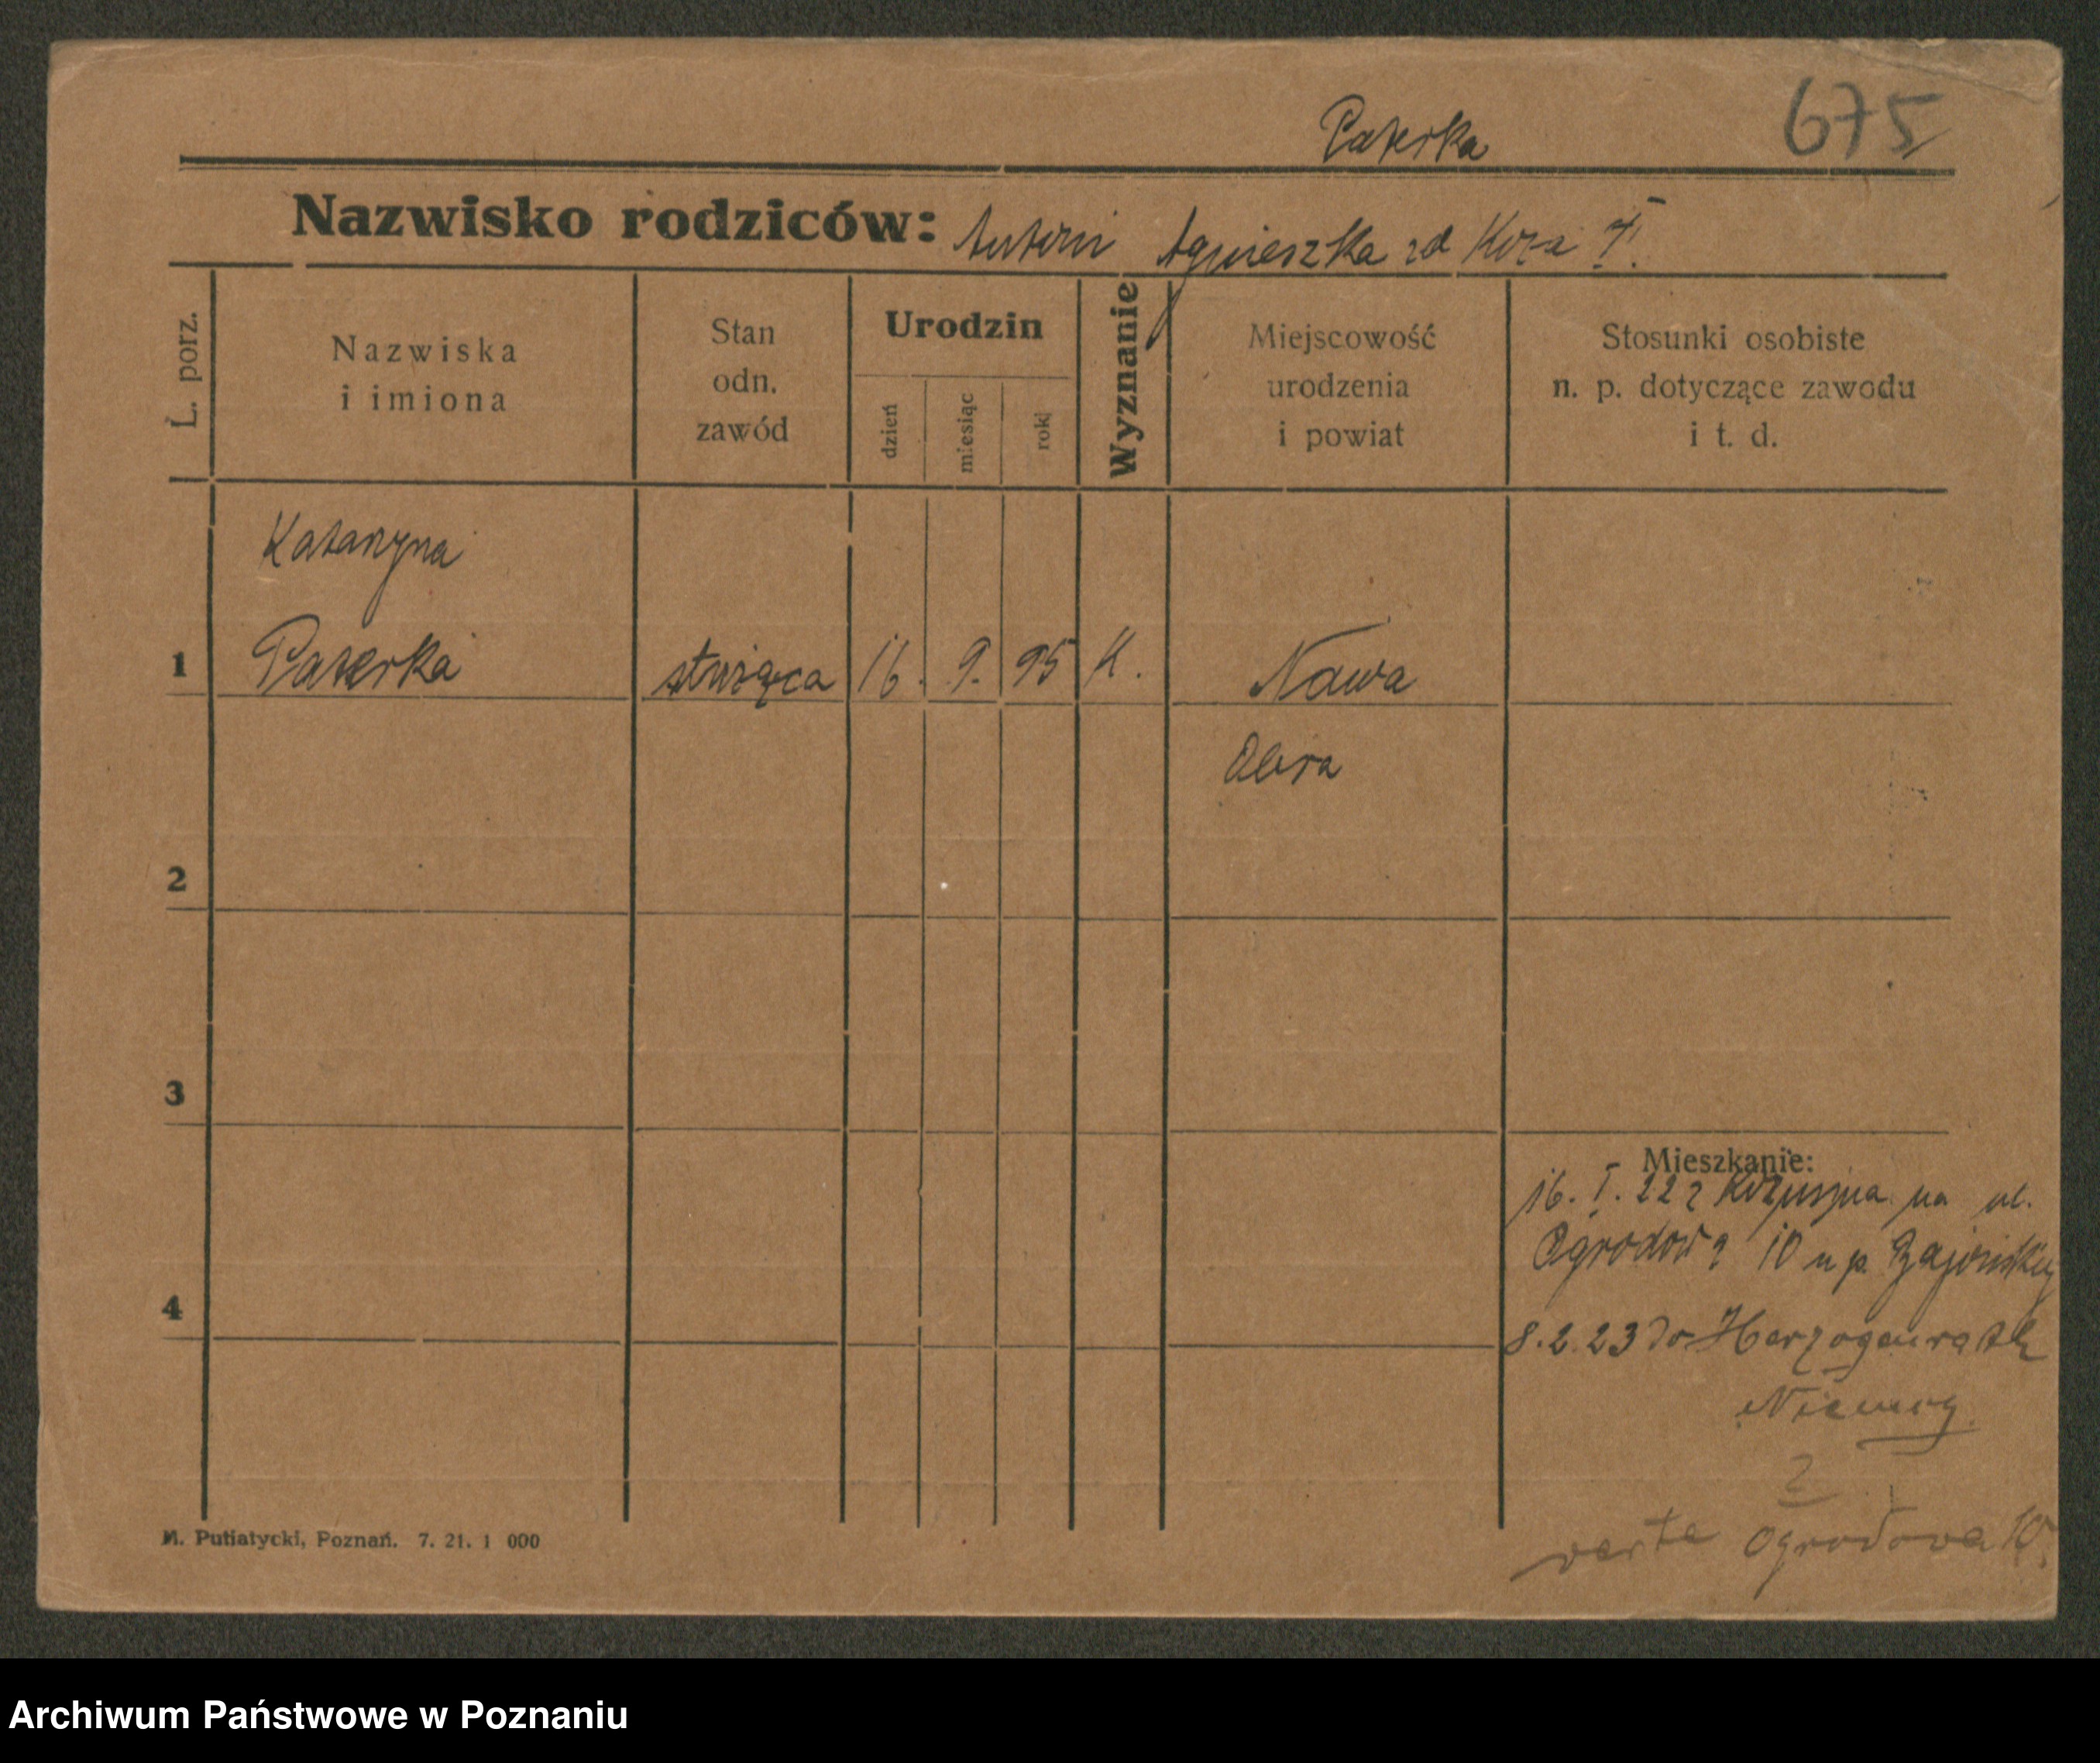 Paterka 675
Nazwisko rodziców: Antoni Agnieszka zd Koza
L. porz.
Nazwiska
i imiona
Stan
odn.
zawód
Urodzin
dzień
miesiąc
rok
Wyznanie
Miejscowość
urodzenia
i powiat
Stosunki osobiste
n. p. dotyczące zawodu
i t. d.
Katarzyna
1 Paterka służąca 16. 9. 95 K. Nawa
Obra
2
3
Mieszkanie:
16. I. 22 z na ul.
Ogrodową 10 u p.
4
8.2.23 do Herzogenrath
Niemcy
2
Ogrodowa 10.
M. Putiatycki, Poznań. 7. 21. 1 000
Archiwum Państwowe w Poznaniu